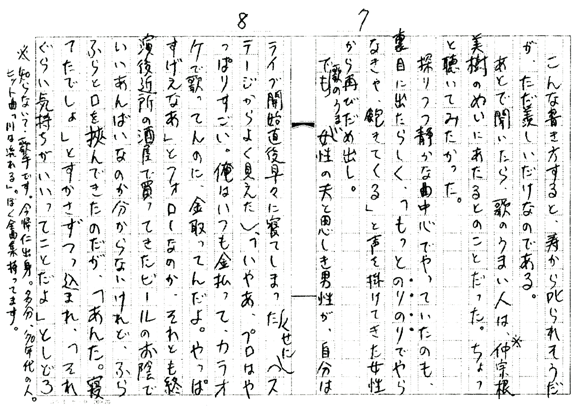 8
7
こんな書き方すると、寿から叱られそうだ
が、ただ羨しいだけなのである。
あとで聞いたら、歌のうまい人は、仲宗根※
美樹のめいにあたるとのことだった。ちょっ
と聴いてみたかった。
探りつつ静かな曲中心でやっていたのも、
裏目に出たらしく、「もっとのりのりでやら
なきゃ、飽きてくる」と声を掛けてきた女性
から再びだめ出し。
でも、歌のうまい女性の夫と思しき男性が、自分は
ライブ開始直後早々に寝てしまった(くせに)「ス
テージからよく見えたし」、「いやあ、プロはや
っぱりすごい。俺はいつも金払って、カラオ
ケで歌ってんのに、金取ってんだよ。やっぱ
すげえなあ」とフォローなのか、それとも終
演後近所の酒屋で買ってきたビールのお陰で
いいあんばいなのか分からないけれど、ふら
ふらと口を挟んできたのだが、「あんた。寝
てたでしょ」とすかさずつっ込まれ、「それ
ぐらい気持ちがいいってことだよ」としどろ
※知らない?歌手です。今帰仁出身。多分、60年代の人。
ヒット曲「川は流れる」。ぼく全曲集持ってます。